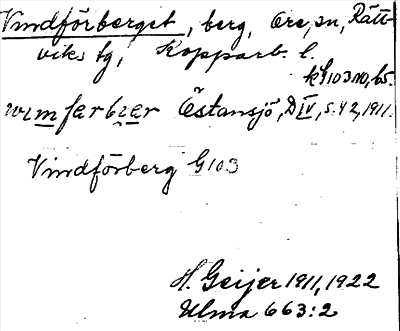 Vindförberget, berg, Ore, sn, Rätt-
viks tg, Kopparb. l.
kf 103 no, b5.
vɪmfərbɪær Östansjö, D IV, s. 42, 1911.
Vindförberg G 103
H. Geijer 1911, 1922
Ulma 663:2